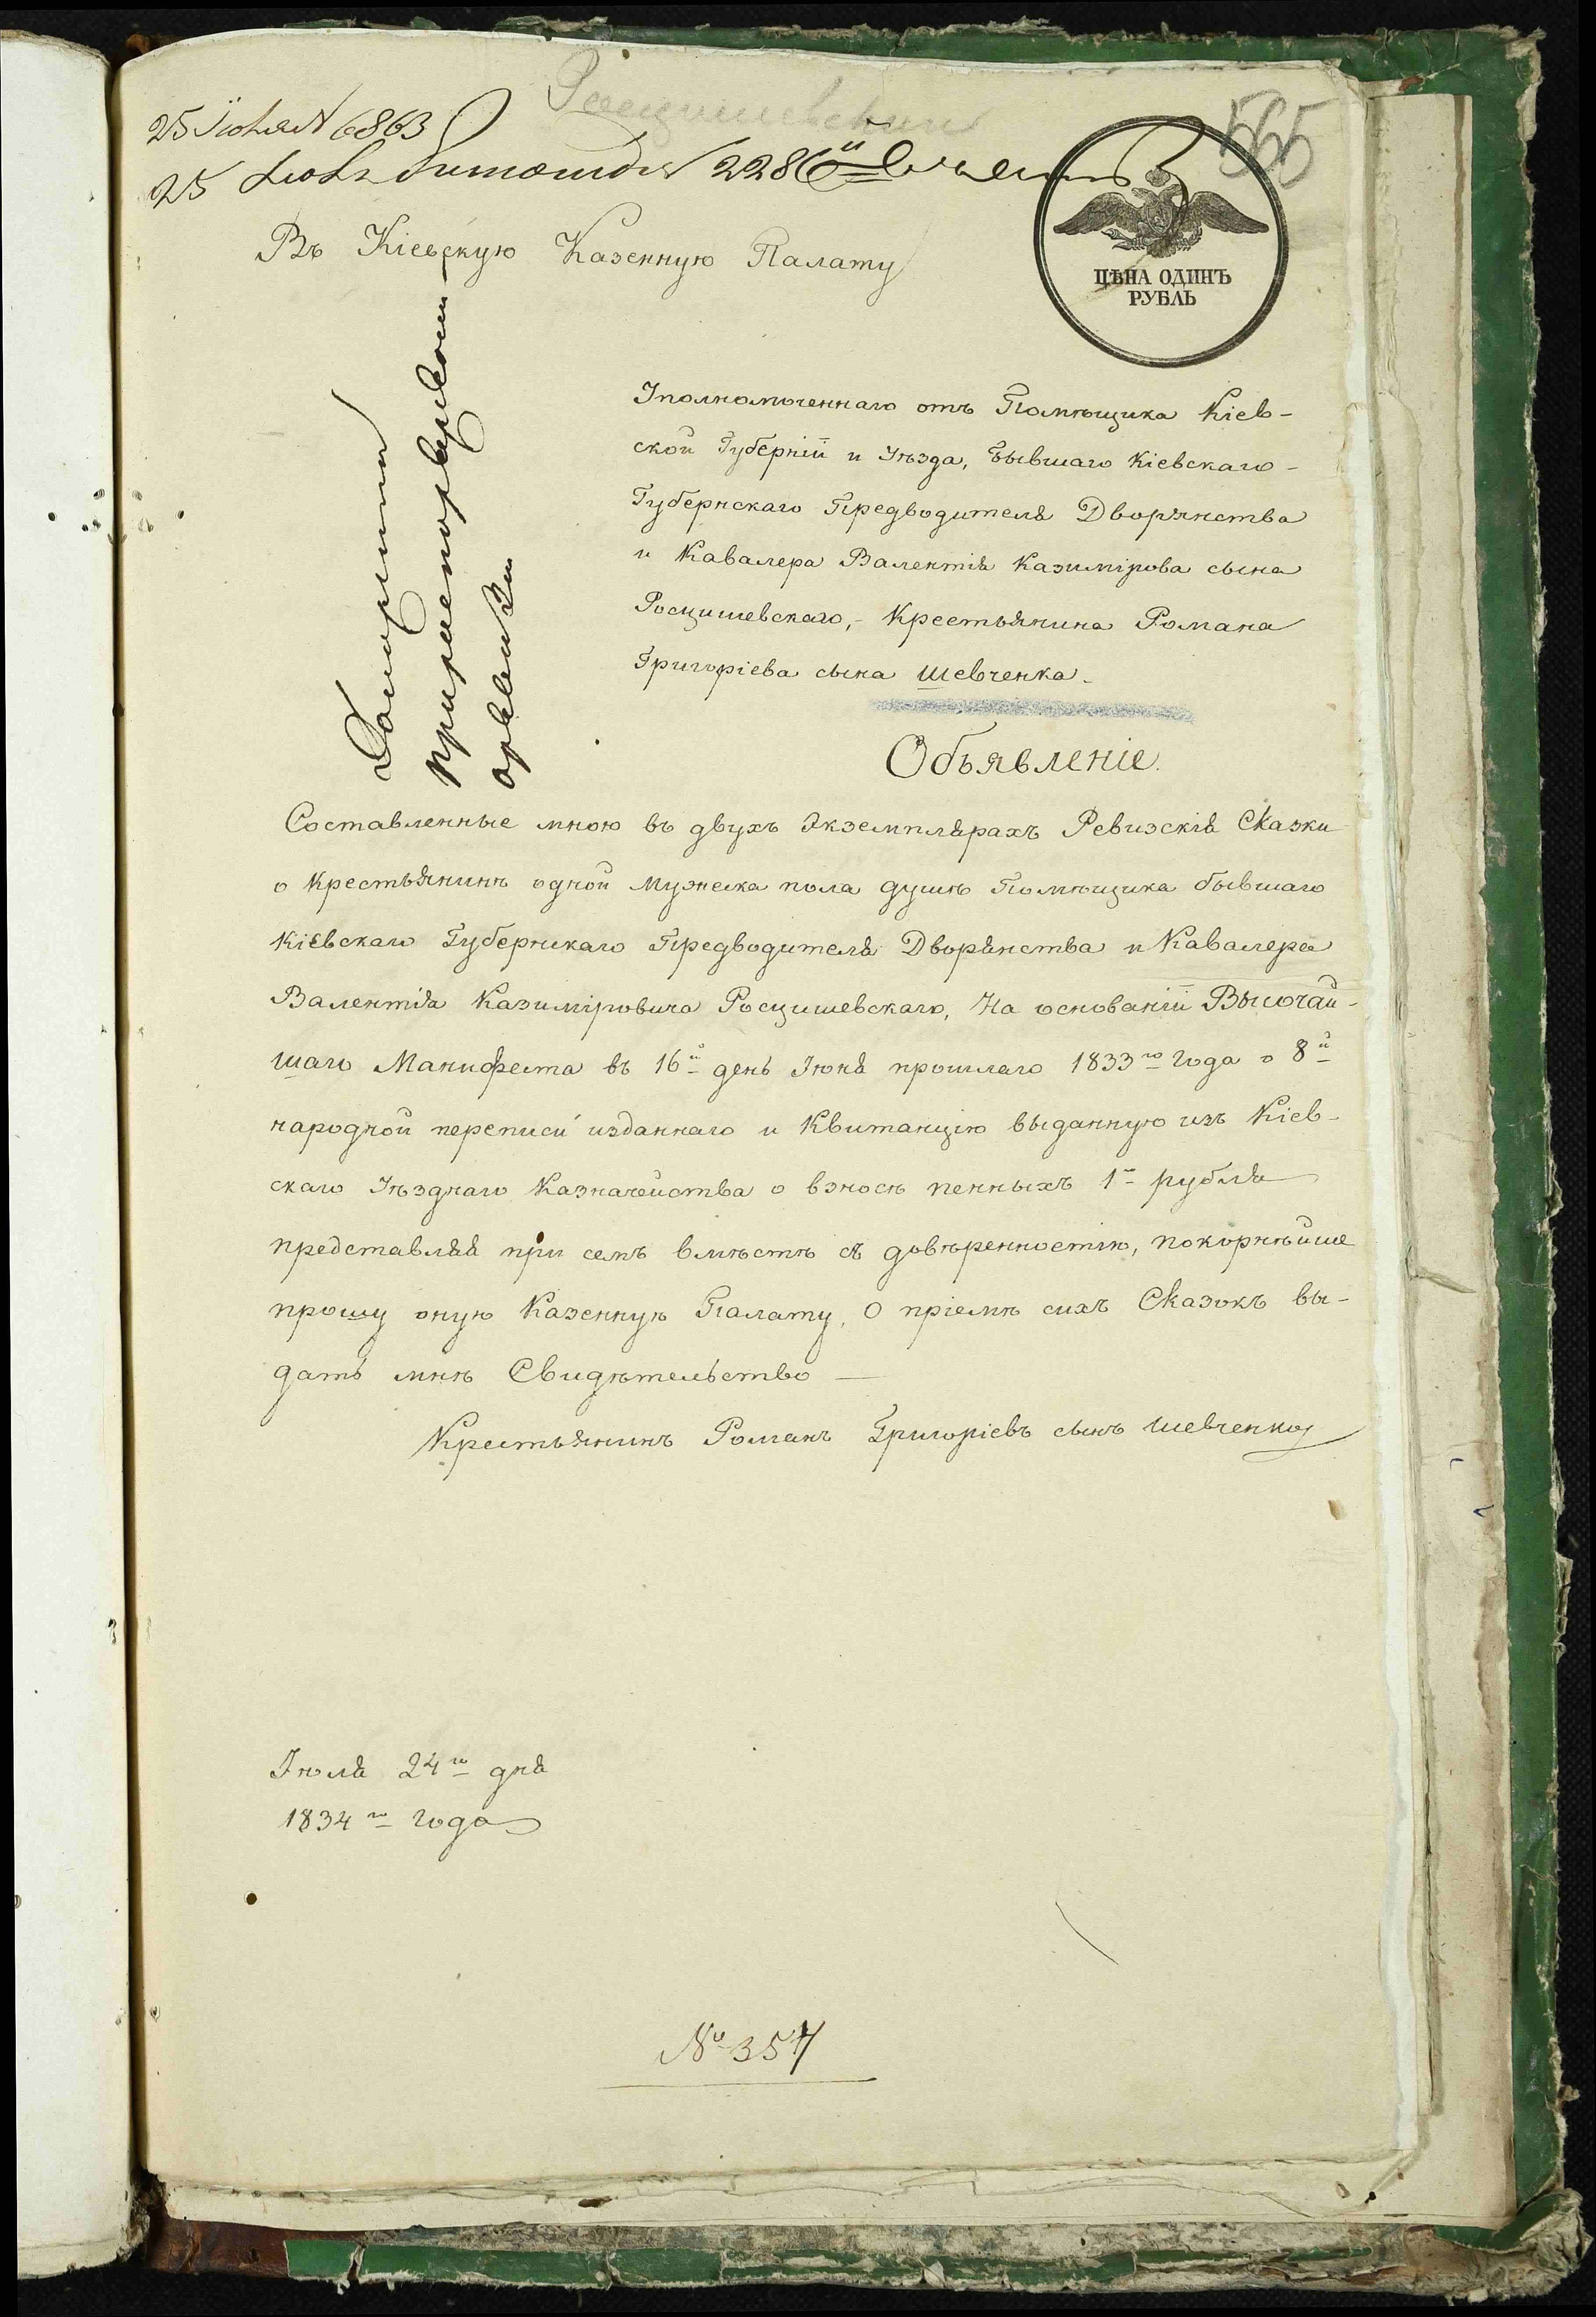 Росцишевскій
565
25 Іюля № 6863
25 Іюля 2286
ЦѢНА ОДИНЪ
РУБЛЬ
Въ Кіевскую Казенную Палату
Уполномоченнаго отъ Помѣщика Кіев-
ской Губерніи и Уѣзда, бывшаго Кіевскаго
Губернскаго Предводителя Дворянства
и Кавалера Валентія Казимірова сына
Росцишевскаго,- Крестьянина Романа
Григоріева сына Шевченка.
Объявленіе.
Составленные мною въ двухъ Экземплярахъ Ревизскія Сказки
о Крестьянинѣ одной мужеска пола душѣ Помѣщика бывшаго
Кіевскаго Губернскаго Предводителя Дворянства и Кавалера
Валентія Казиміровича Росцишевскаго, На основаніи Высочай-
шаго Манифеста въ 16й день Іюня прошлаго 1833го Года о 8й
народной переписи изданнаго и Квитанцію выданную изъ Кіев-
скаго Уѣзднаго Казначейства о взносѣ пенныхъ 1го рубля
представляя при семъ вмѣстѣ съ довѣренностію, покорнѣйше
прошу оную Казенную Палату, О пріемѣ сихъ Сказокъ вы-
дать мнѣ Свидѣтельство —
Крестьянинъ Романъ Григоріевъ сынъ Шевченко
Іюля 24го дня
1834го Года
№ 357